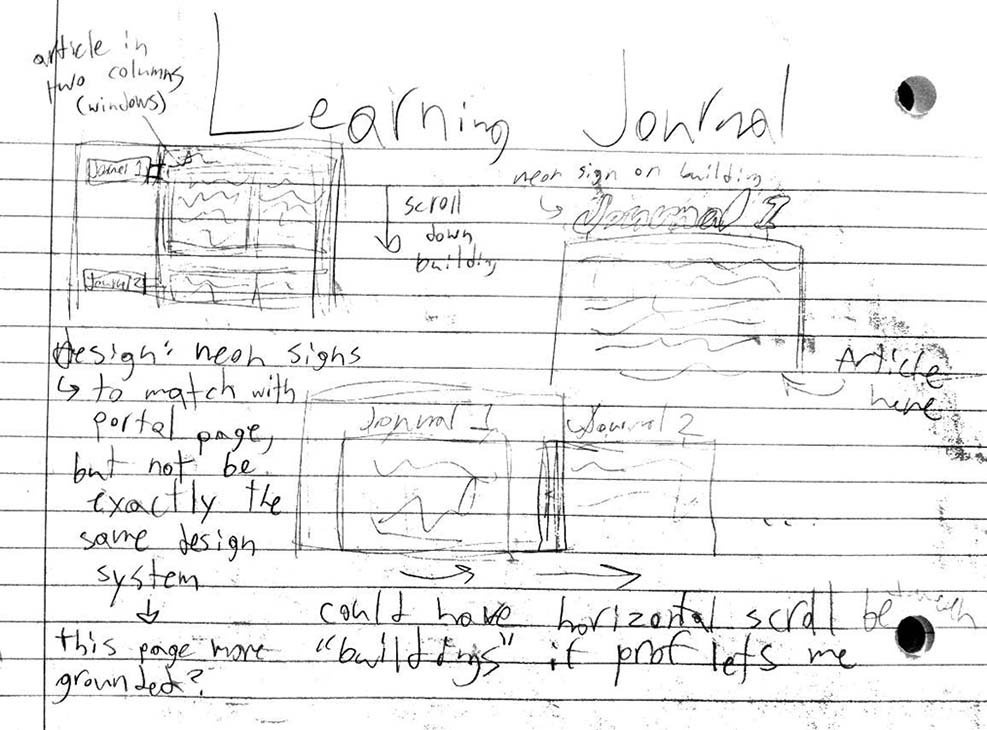 Learning Journal
article in
two columns
(windows)
Journal 1
Journal 2
scroll
down
building
neon sign on building
Journal 1
Article
here
Design: neon signs
↳ to match with
portal page,
but not be
exactly the
same design
system
↓
this page more
grounded?
Journal 1
Journal 2
...
could have horizontal scroll between
"buildings" if prof lets me